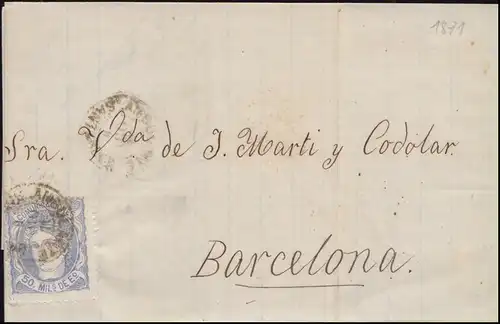 1871
Sra. Vda de J. Marti y Codolar.
Barcelona.
50 MILS DE E.